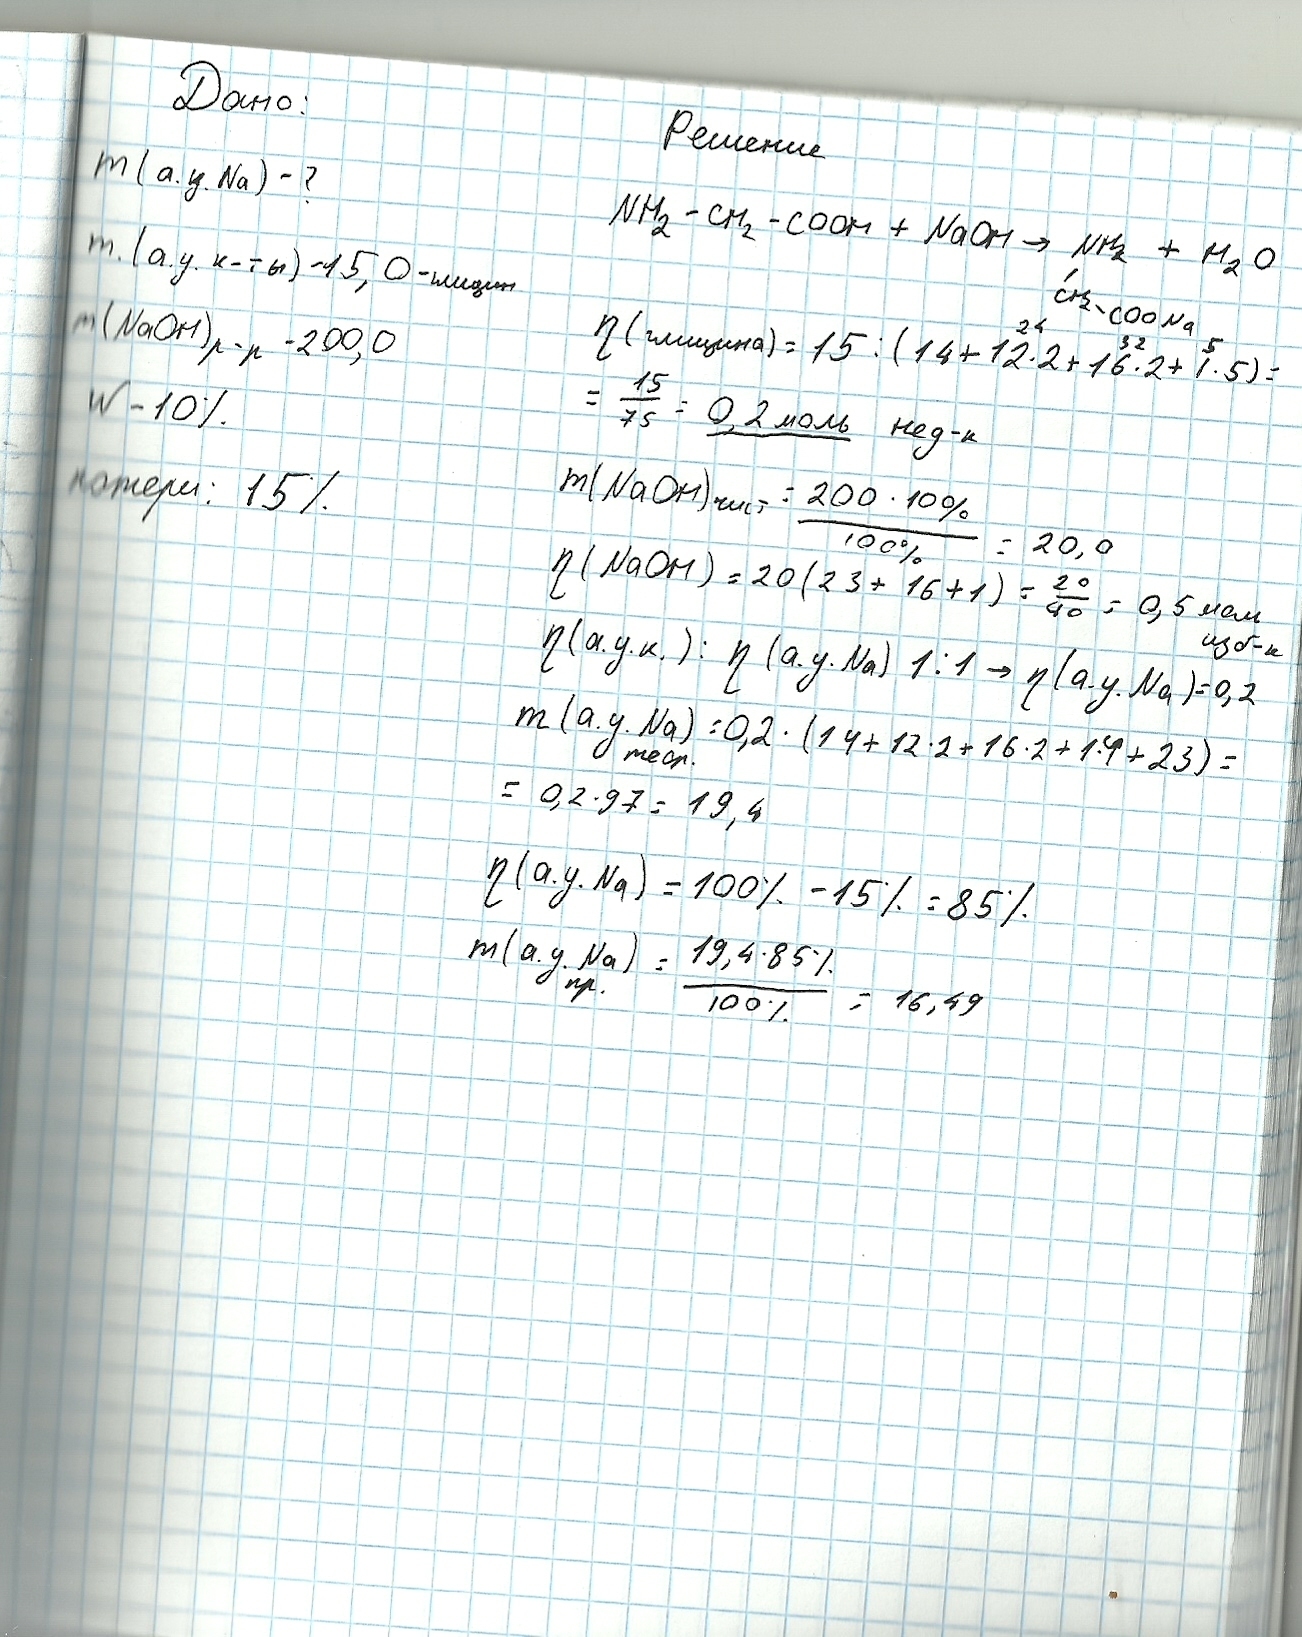 Дано:
m(а.у.Na) - ?
m.(а.у. к-ты) -15,0 -глицин
m(NaOH)р-р -200,0
W - 10%.
потери: 15%.
Решение
NH2 - CH2 - COOH + NaOH → NH2 + H2O
CH2 - COONa
24 32 5
η(глицина) = 15 : (14 + 12·2 + 16·2 + 1·5) =
= 15/75 = 0,2 моль нед-к
m(NaOH)чист = 200 · 10% / 100% = 20,0
η(NaOH) = 20(23 + 16 + 1) = 20/40 = 0,5 мол
изб-к
η(а.у.к.) : η(а.у.Na) 1:1 → η(а.у.Na) = 0,2
m(а.у.Na) = 0,2 · (14 + 12·2 + 16·2 + 1·4 + 23) =
теор.
= 0,2·97 = 19,4
η(а.у.Na) = 100% - 15% = 85%.
m(а.у.Na) = 19,4·85% / 100% = 16,49
пр.